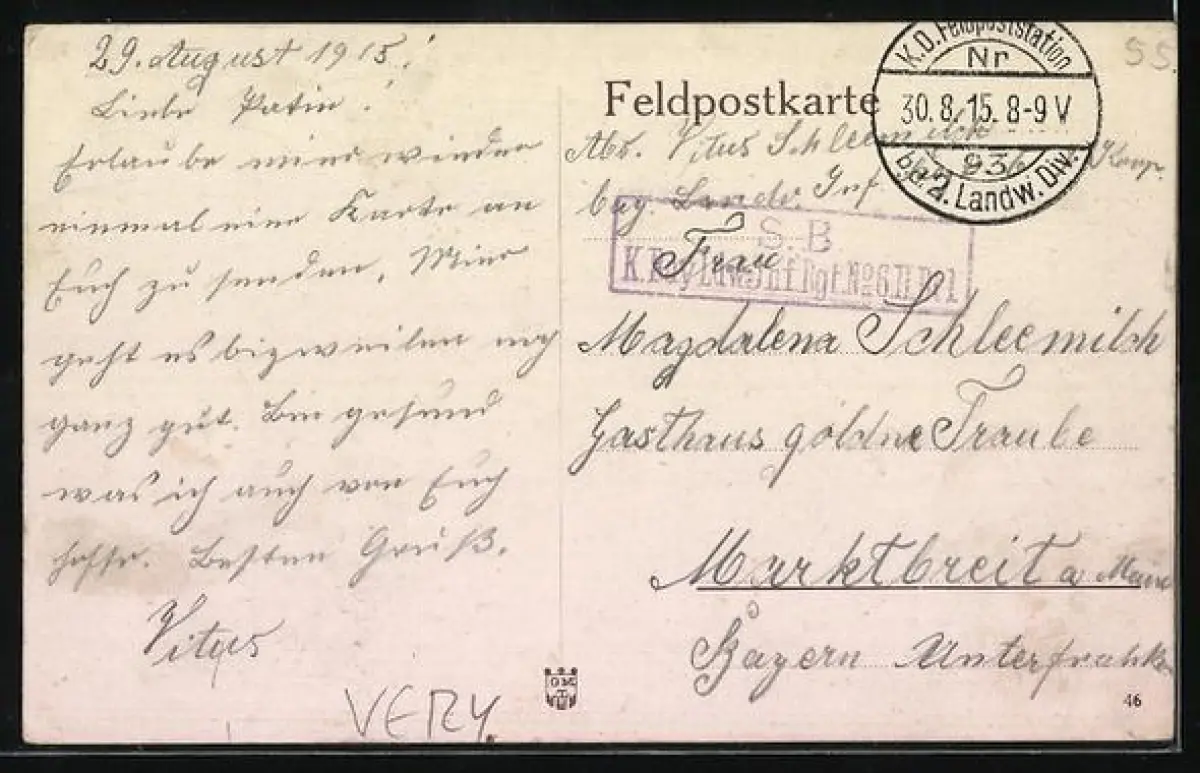 29. August 1915!
Liebe Patin!
Erlaube mir wieder
einmal eine Karte an
Euch zu senden. Mir
geht es bisweilen noch
ganz gut. Bin gesund
was ich auch von Euch
hoffe. Besten Gruß.
Vitus
VERY.
Feldpostkarte
55
K.D. Feldpoststation
Nr
30. 8. 15. 8-9 V
936
2. Landw. Div.
Abs. Vitus Schleemilch Komp.
bay. Landw. Inf
S. B.
K. Bay. Ldw. Inf. Rgt. No 6
Frau
Magdalena Schleemilch
Gasthaus goldne Traube
Marktbreit a Main
Bayern Unterfranken
46